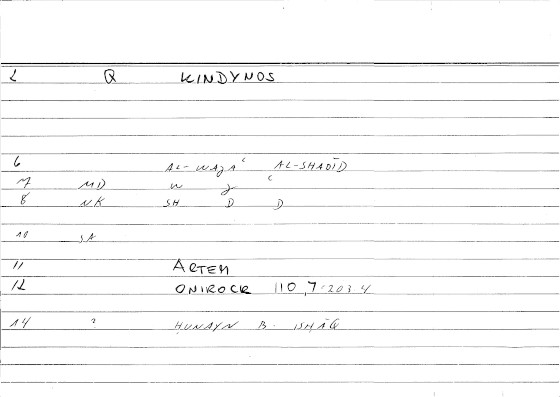 2 Q KINDYNOS
6 AL-WAJAʿ AL-SHADĪD
7 MD W J ʿ
8 NK SH D D
10 SA
11 ARTEM
12 ONIROCR 110,7-203.4
14 ? HUNAYN B. ISHĀQ